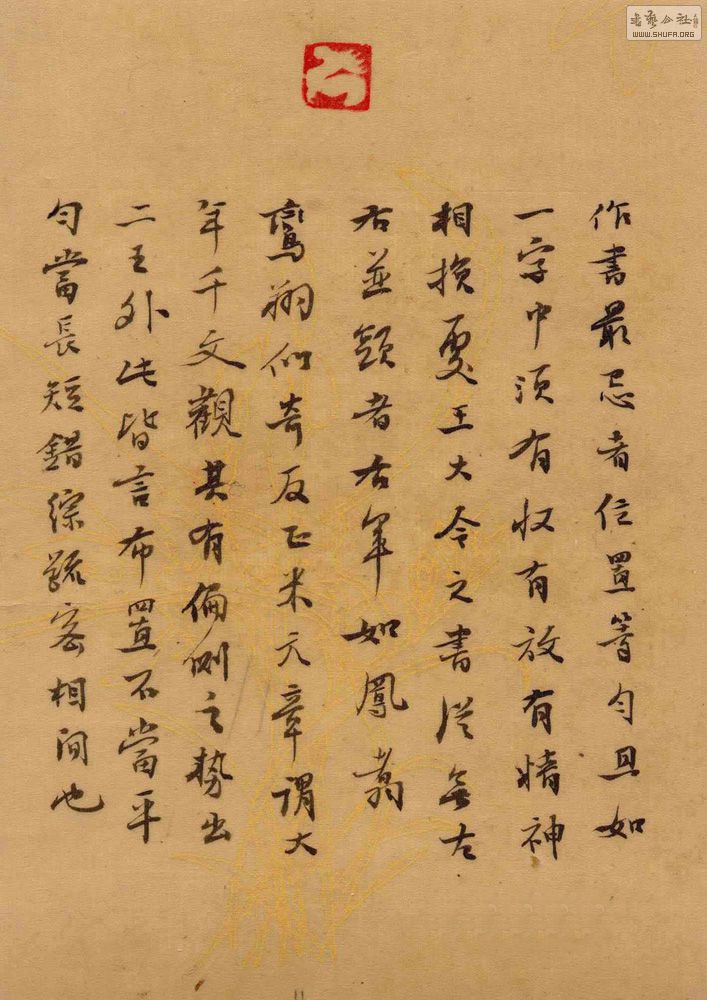 作書最忌者位置等勻且如
一字中須有収有放有精神
相挽處王大令之書從無左
右並頭者右軍如鳳翥
鸞翔似奇反正米元章謂大
年千文觀其有偏側之勢出
二王外此皆言布置不當平
勻當長短錯綜疏密相間也
WWW.SHUFA.ORG